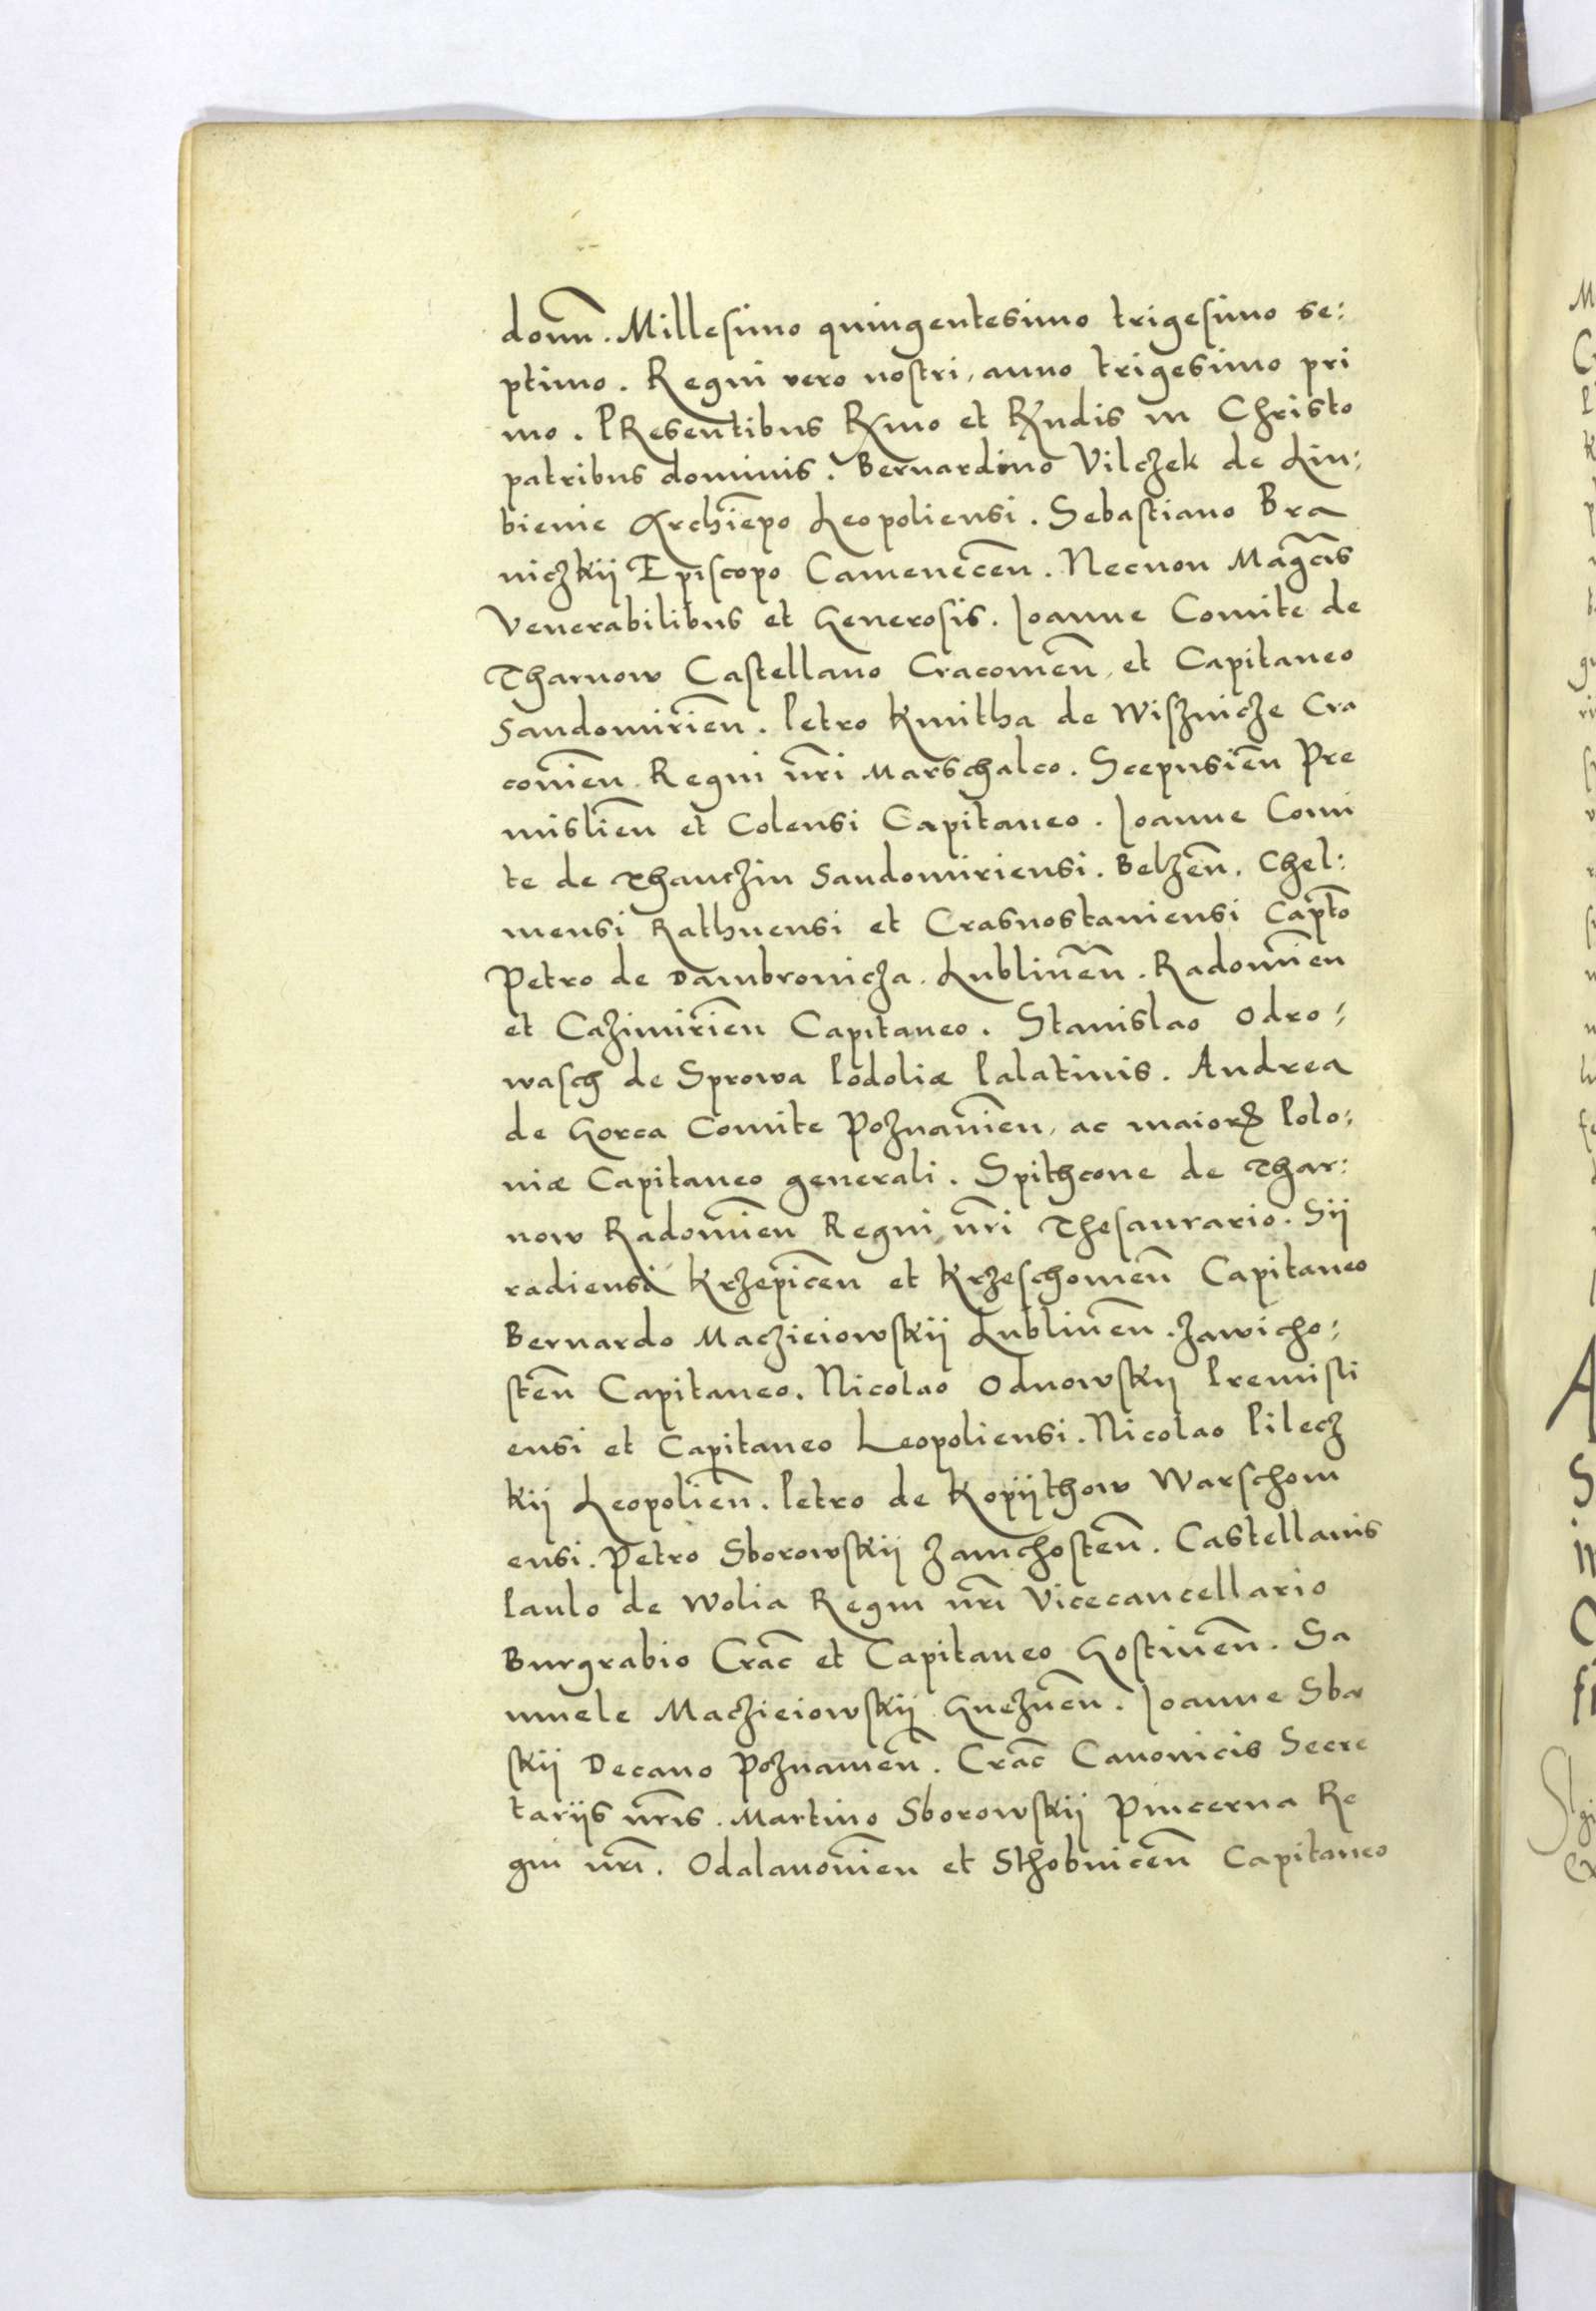 domĩ. Millesimo quingentesimo trigesimo se:
ptimo. Regni vero nostri, anno trigesimo pri
mo. PResentibus Rx̃mo et Rx̃ndis in Christo
patribus dominis. Bernardino Vilczek de Lin:
bienie Archiẽpo Leopoliensi. Sebastiano Bra
niczkij Episcopo Camenecẽn. Necnon Magc̃is
Venerabilibus et Generosis. Joanne Comite de
Tharnow Castellano Cracovieñ, et Capitaneo
Sandomirieñ. Petro Kmitha de Wisznicze Cra
covieñ. Regni nr̃i Marschalco. Scepusieñ Pre
mislieñ et Colensi Capitaneo. Joanne Comi
te de Thanczin Sandomiriensi. Belzeñ. Chel:
mensi Rathnensi et Crasnostaviensi Capt̃o
Petro de Dambrovicza. Lublineñ. Radomieñ
et Cazimirieñ Capitaneo. Stanislao Odro:
wasch de Sprowa Podoliæ Palatinis. Andrea
de Gorca Comite Poznanieñ, ac maioris Polo:
niæ Capitaneo generali. Spithcone de Thar:
now Radomieñ Regni nr̃i Thesaurario. Sij
radiensi Krzepiceñ et Krzeschovieñ Capitaneo
Bernardo Maczieiowskij Lublineñ. Zawicho:
steñ Capitaneo. Nicolao Odnowskij Premisli
ensi et Capitaneo Leopoliensi. Nicolao Pilecz
kij Leopolieñ. Petro de Kopijthow Warschovi
ensi. Petro Sborowskij Zavichosteñ. Castellanis
Paulo de Wolia Regni nr̃i Vicecancellario
Burgrabio Crac̃ et Capitaneo Gostineñ. Sa
muele Maczieiowskij Gnezneñ. Joanne Sba
skij Decano Poznanieñ. Crac̃ Canonicis Secre
tarijs nr̃is. Martino Sborowskij Pincerna Re
gni nr̃i. Odalanovieñ et Sthobniceñ Capitaneo